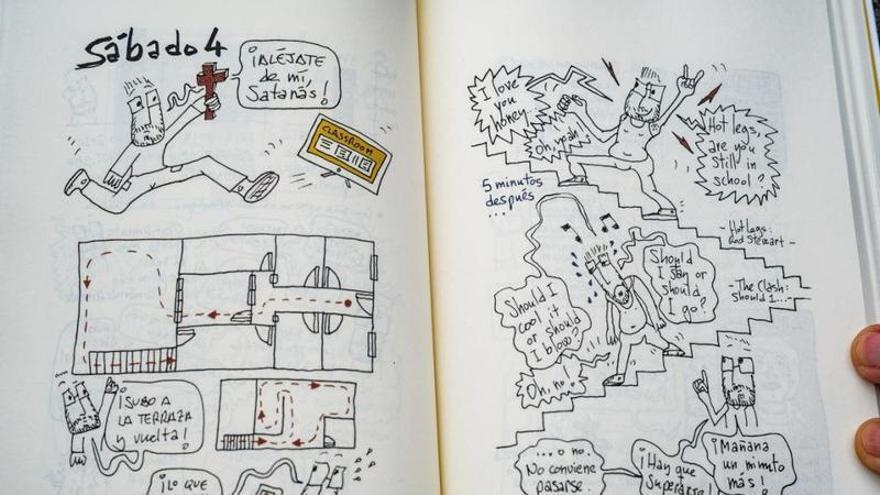 Sábado 4
¡ALÉJATE
de mí,
Satanás!
CLASSROOM
¡SUBO A
LA TERRAZA
y vuelta!
¡LO QUE
I love
you
honey
Oh, yeah!
Hot legs,
are you
still in
school?
5 minutos
después
...
- Hot Legs:
Rod Stewart -
Should I
cool it
or should
I blow?
Should
I stay or
should
I go?
- The Clash:
Should I...-
Oh, no!
... o no.
No conviene
pasarse.
¡Hay que
superarse!
¡Mañana
un minuto
más!